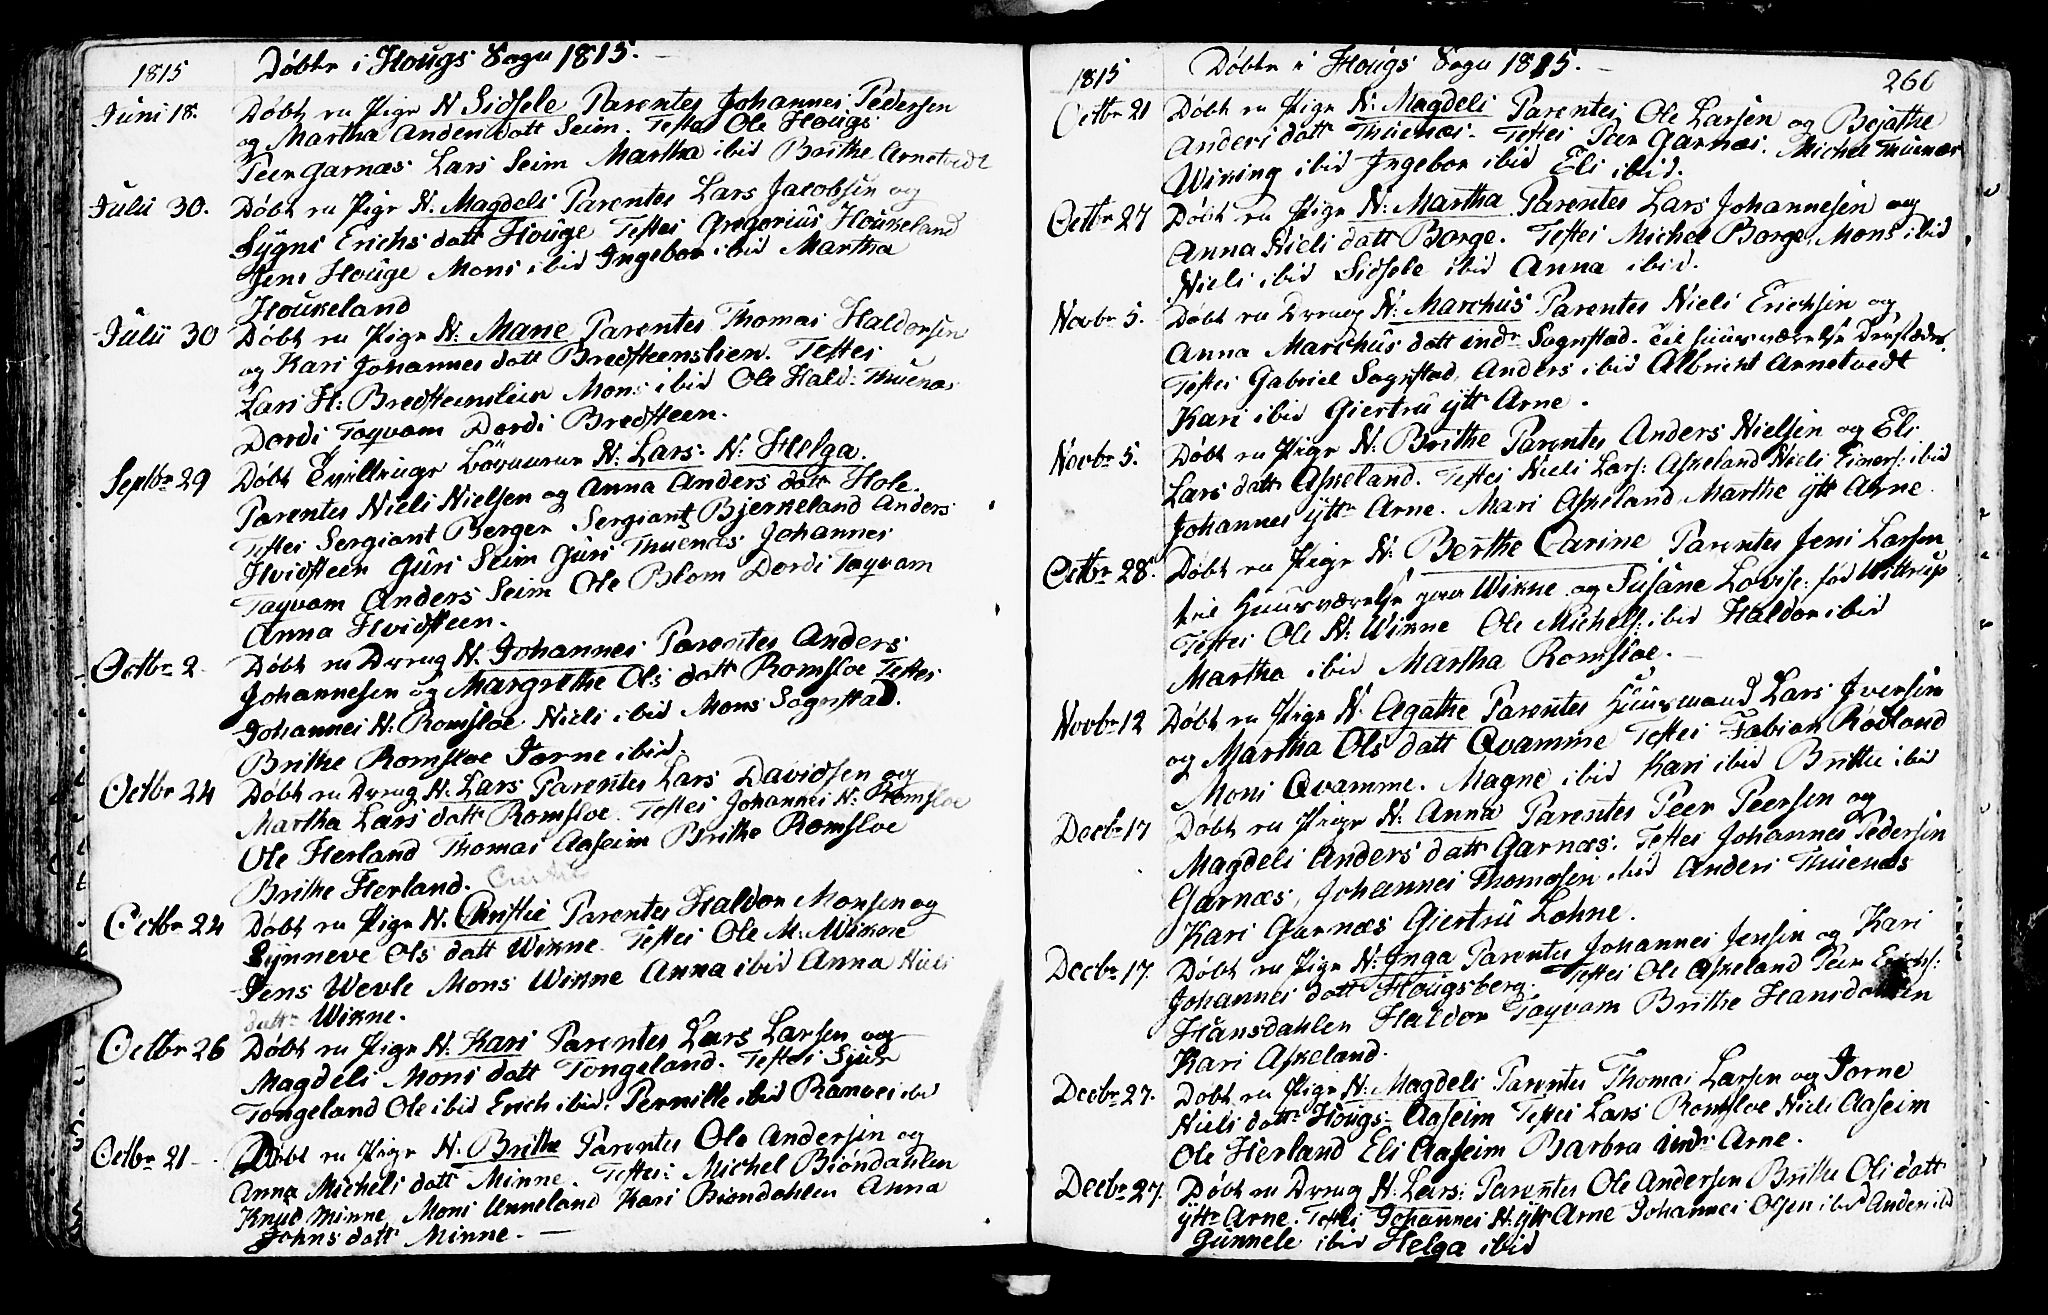 1815
Døbte i Hougs Sogn 1815.
Juni 18.
Døbt en Pige N. Sidsele Parentes Johannes Pedersen
og Martha Anders datt Seim. Testes Ole Hougs
Peer Garnæs Lars Seim Martha ibid Brithe Arnetvedt
Julii 30.
Døbt en Pige N. Magdeli Parentes Lars Jacobsen og
Sÿgni Erichs datt Houge Testes Gregorius Houkeland
Jens Houge Mons ibid Ingebor ibid Martha
Houkeland
Julii 30
Døbt en Pige N: Marie Parentes Thomas Haldorsen
og Kari Johannes datt Bredsteenslien. Testes
Lars H: Bredsteenslien Mons ibid Ole Hald: Thuenæs
Dordi Taqvam Dordi Bredsteen.
Septbr 29
Døbt Tvillinge Børnene N: Lars: N: Helga.
Parentes Niels Nielsen og Anna Anders datt Hole.
Testes Sergiant Berger Sergiant Bjerkeland Anders
Hvidsteen Guri Seim Guri Thuenæs Johannes
Taqvam Anders Seim Ole Blom Dordi Taqvam
Anna Hvidsteen.
Octbr 2
Døbt en Dreng N. Johannes Parentes Anders
Johannesen og Margrethe Ols datt Romsloe Testes
Johannes N: Romsloe Niels ibid Mons Sognstad.
Brithe Romsloe Jorne ibid.
Octbr 24
Døbt en Dreng N. Lars Parentes Lars Davidsen og
Martha Lars datt Romsloe. Testes Johannes N: Romsloe
Ole Herland Thomas Aaseim Brithe Romsloe
Brithe Herland.
Octbr 24
Døbt en Pige N. Christie Parentes Haldor Monsen og
Synneve Ols datt Wikne. Testes Ole M: Wikne
Jens Wevle Mons Wikne Anna ibid Anna Niels
datt Wikne.
Octbr 26
Døbt en Pige N. Kari Parentes Lars Larsen og
Magdeli Mons datt Tongeland. Testes Sjur
Tongeland Ole ibid Erich ibid. Pernille ibid Ranvei ibd
Octbr 21
Døbt en Pige N. Brithe Parentes Ole Andersen og
Anna Michels datt Minne. Testes: Michel Biöndahlen
Knud Minne Mons Unneland Kari Biondahlen Anna
Johns datt Minne.
1815
Døbte i Hougs Sogn 1815.
266
Octbr 21
Døbt en Pige N: Magdeli Parentes Ole Larsen og Bejathe
Anders datt Thuenæs. Testes Peer Garnæs. Michel Thuenæs
Wiking ibid Ingebor ibid Eli ibid.
Octbr 27
Døbt en Pige N: Martha Parentes Lars Johannesen og
Anna Niels datt Borge. Testes Michel Borge, Mons ibid
Niels ibid Sidsele ibid Anna ibid.
Novbr 5.
Døbt en Dreng N: Marchus Parentes Niels Erichsen og
Anna Marchus datt indr Sognstad. til huusværelse
Testes Gabriel Sognstad, Anders ibid Albricht Arnetvedt
Kari ibid Giertru ÿttr Arne.
Novbr 5.
Døbt en Pige N. Brithe Parentes Anders Nielsen og Eli
Lars datt Askeland. Testes Niels Lars: Askeland Niels Einers: ibid
Johannes ÿttr Arne. Mari Askeland Marthe ÿtt Arne
Octbr 28.
Døbt en Pige N. Berthe Carine Parentes Jens Larsen
til Huusværelse paa Wikne og Susane Lovise: fød Wittrup
Testes Ole N: Wikne Ole Michels: ibid Haldor ibid
Martha ibid Martha Romsloe.
Novbr 12
Døbt en Pige N. Agathe Parentes Huusmand Lars Iversen
og Martha Ols datt Qvamme Testes Fabian Rödland
Mons Qvamme. Magne ibid Kari ibid Brithe ibid
Decbr 17
Døbt en Pige N. Anna Parentes Peer Peersen og
Magdeli Anders datt Garnæs. Testes Johannes Pedersen
Garnæs, Johannes Thomasen ibid Anders Thuenæs
Kari Garnæs Giertru Lohne.
Decbr 17.
Døbt en Pige N: Inga Parentes Johannes Jensen og Kari
Johannes datt Hougsberg. Testes Ole Askeland Peer Erichs:
Hansdahlen Haldor Taqvam Brithe Hansdahlen
Kari Askeland.
Decbr 27.
Døbt en Pige N: Magdeli Parentes Thomas Larsen og Jorne
Niels datt Hougs: Aaseim Testes Lars Romsloe Niels Aaseim
Ole Herland Eli Aaseim Barbra indr Arne.
Decbr 27.
Døbt en Dreng N. Lars: Parentes Ole Andersen Brithe Ols datt
ÿttr Arne. Testes Johannes N. ÿtt Arne Johannes Olsen ibid Anders ibd
Gunnele ibid Helga ibid